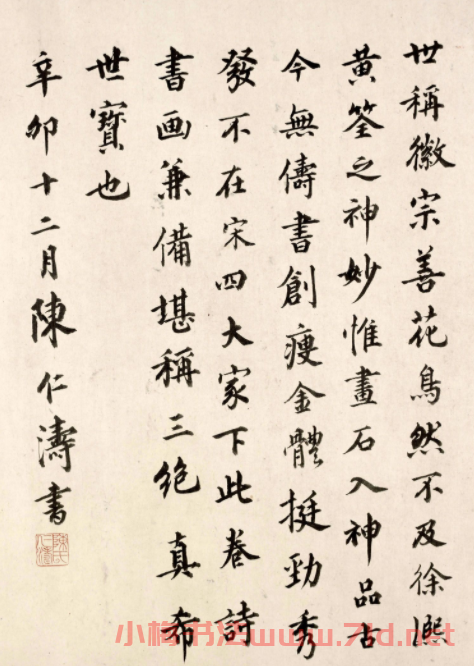 世稱徽宗善花鳥然不及徐熙
黃筌之神妙惟畫石入神品古
今無儔書創瘦金體挺勁秀
發不在宋四大家下此卷詩
書画兼備堪稱三绝真希
世寶也
辛卯十二月陳仁濤書
陳氏仁濤
小梅书法www.7ld.net